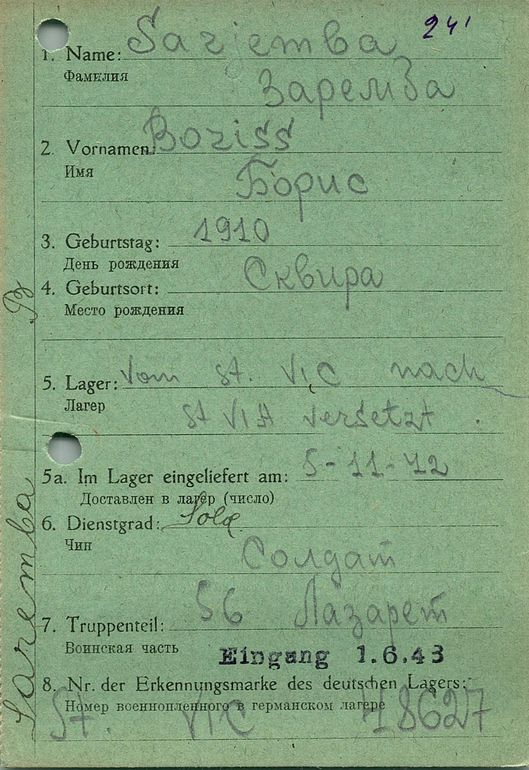 24'
1. Name: Sarjemba
Фамилия
Заремба
2. Vornamen: Boriss
Имя
Борис
3. Geburtstag: 1910
День рождения
4. Geburtsort: Сквира
Место рождения
5. Lager: Vom St. VIC nach
Лагер
St VIA versetzt.
5a. Im Lager eingeliefert am: 5-11-42
Доставлен в лагер (число)
6. Dienstgrad: Sold
Чин
Солдат
7. Truppenteil: 56 Лазарет
Воинская часть
Eingang 1.6.43
8. Nr. der Erkennungsmarke des deutschen Lagers:
Номер военнопленного в германском лагере
St. VIC 18627
Saremba B